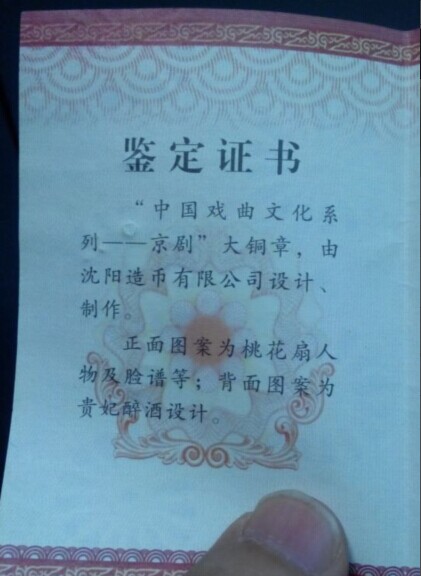 鉴定证书
“中国戏曲文化系
列——京剧”大铜章，由
沈阳造币有限公司设计、
制作。
正面图案为桃花扇人
物及脸谱等；背面图案为
贵妃醉酒设计。